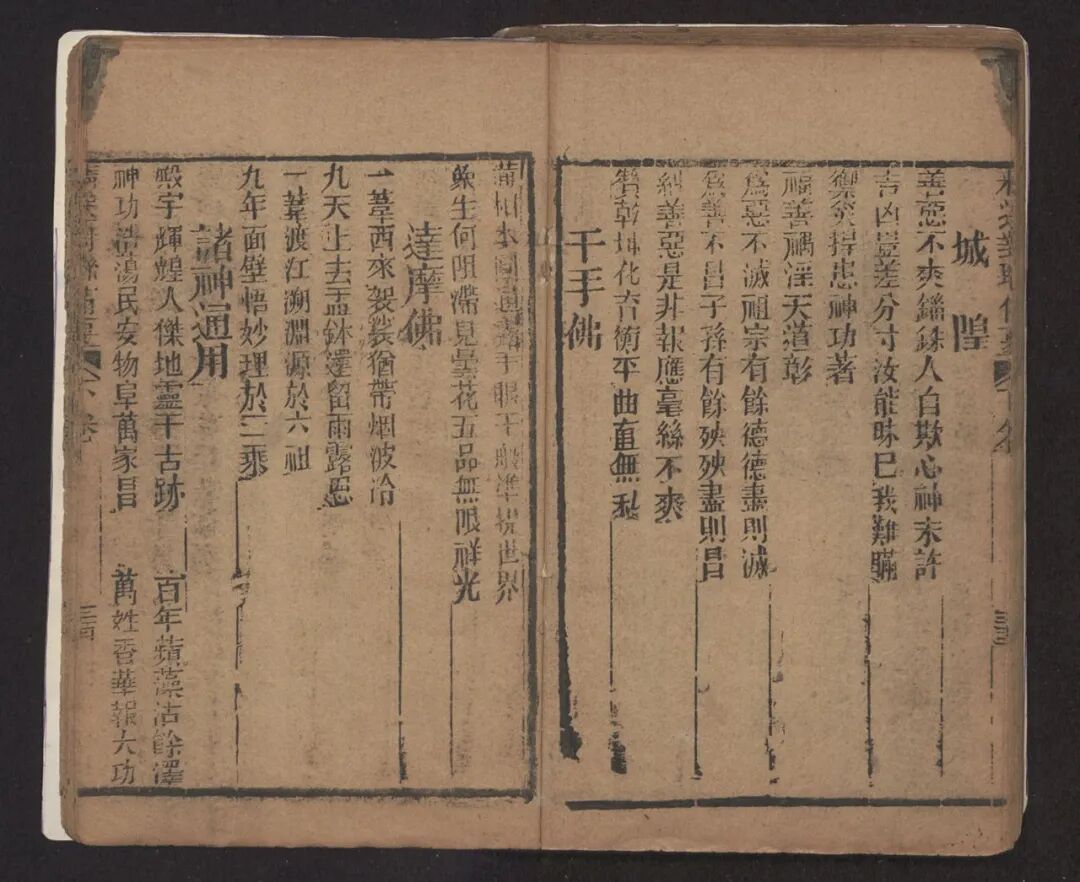 城隍
善惡不爽錙銖人自欺心神未許
吉凶豈差分寸汝能昧已我難瞞
禦災捍患神功著
福善禍淫天道彰
爲惡不滅祖宗有餘德德盡則滅
爲善不昌子孫有餘殃殃盡則昌
糾善惡是非報應毫絲不爽
贊乾坤化育衡平曲直無私
千手佛
手眼千般準提世界
衆生何阻滯見曇花五品無限祥光
達摩佛
一葦西來袈裟猶帶烟波冷
九天上去盂鉢還留雨露恩
一葦渡江溯淵源於六祖
九年面壁悟妙理於三乘
諸神通用
殿宇輝煌人傑地靈千古跡 百年蘋藻沾餘澤
神功浩蕩民安物阜萬家昌 萬姓香華報大功
下卷
三四